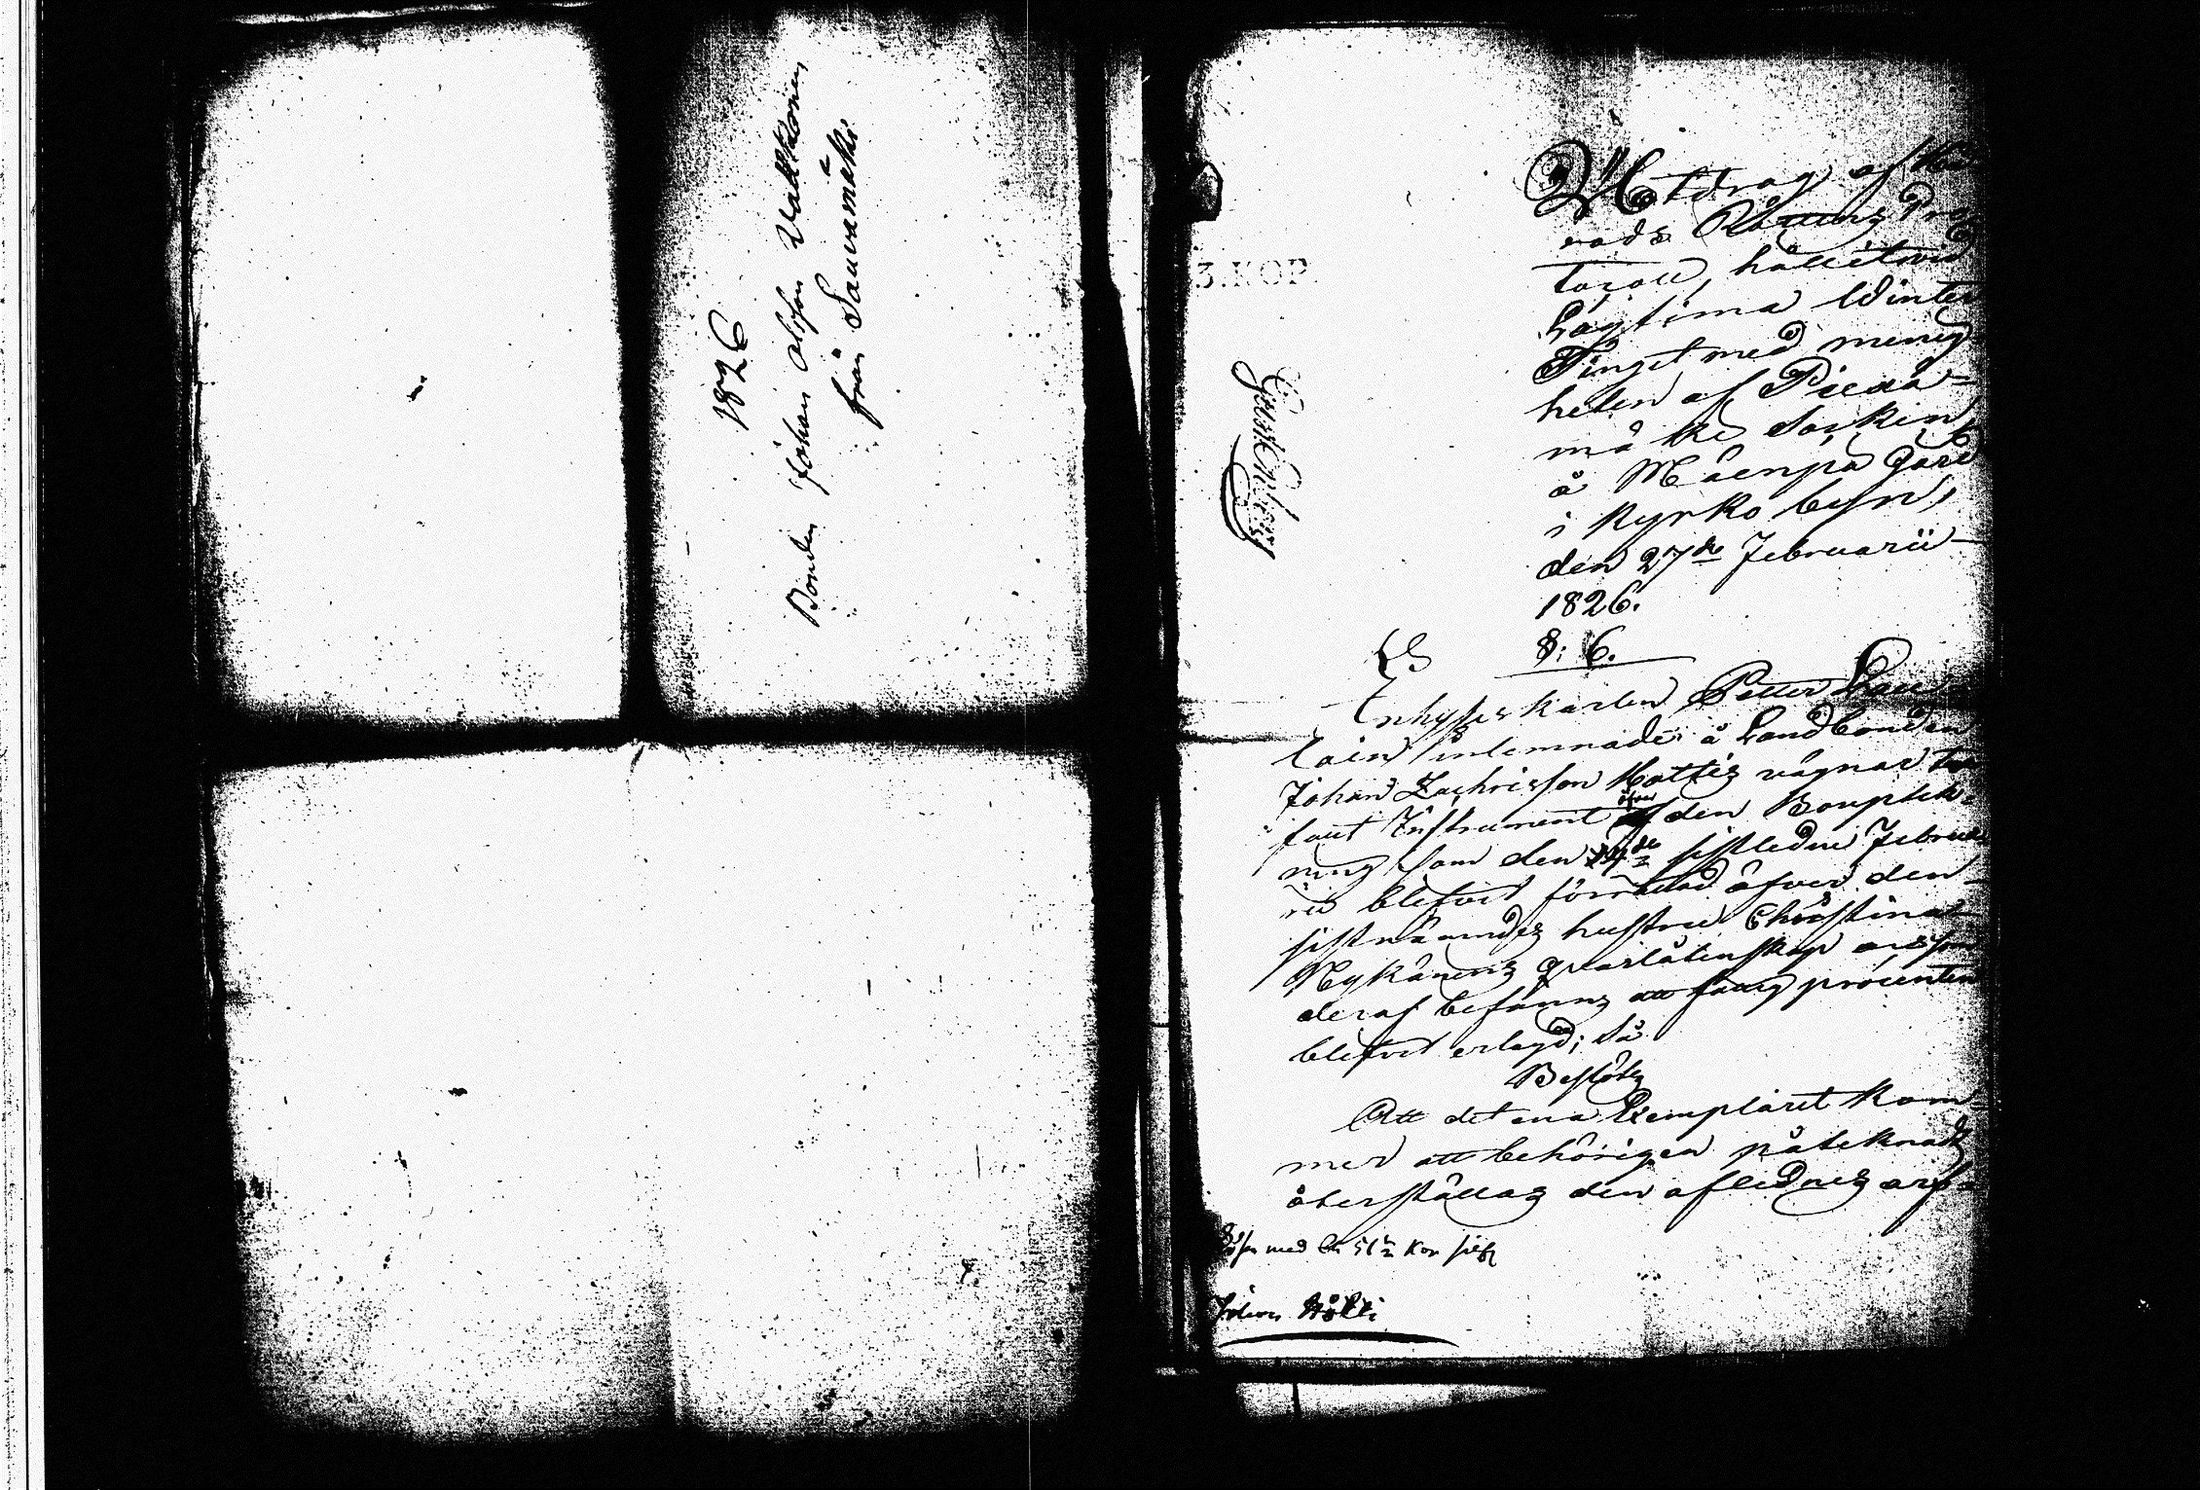 1826
Bonden Johan Olofson Valkkonen
från Sauvamäki
3.KOP.
Utdrag af Hä-
rads Rättens Pro-
tocoll, hållit vid
Lagtima Winter
Tinget med menig-
heten af Piexä-
mäki Sockin,
å Mäenpä Gård
i Kyrko byn,
den 27de Februarii
1826.
§: 6.
Inhyses karlen Petter Lau-
lain inlemnade å Landbonden
Johan Zachrisson Hottis vägnar
Instrument öfver den Bouptek-
ning som den sistledne Februa-
rii blefvit förrättad öfver den
sistnämndes hustru Christina
Nykänens qvarlåtenskap
deraf befanns att procenten
blefvit erlagd; Så
Beslöts
Att det ena Exemplaret kom-
mer att behörigen påteknadt
återställas den aflednes arf-
Lösen med 51½ Kop silf
Johan